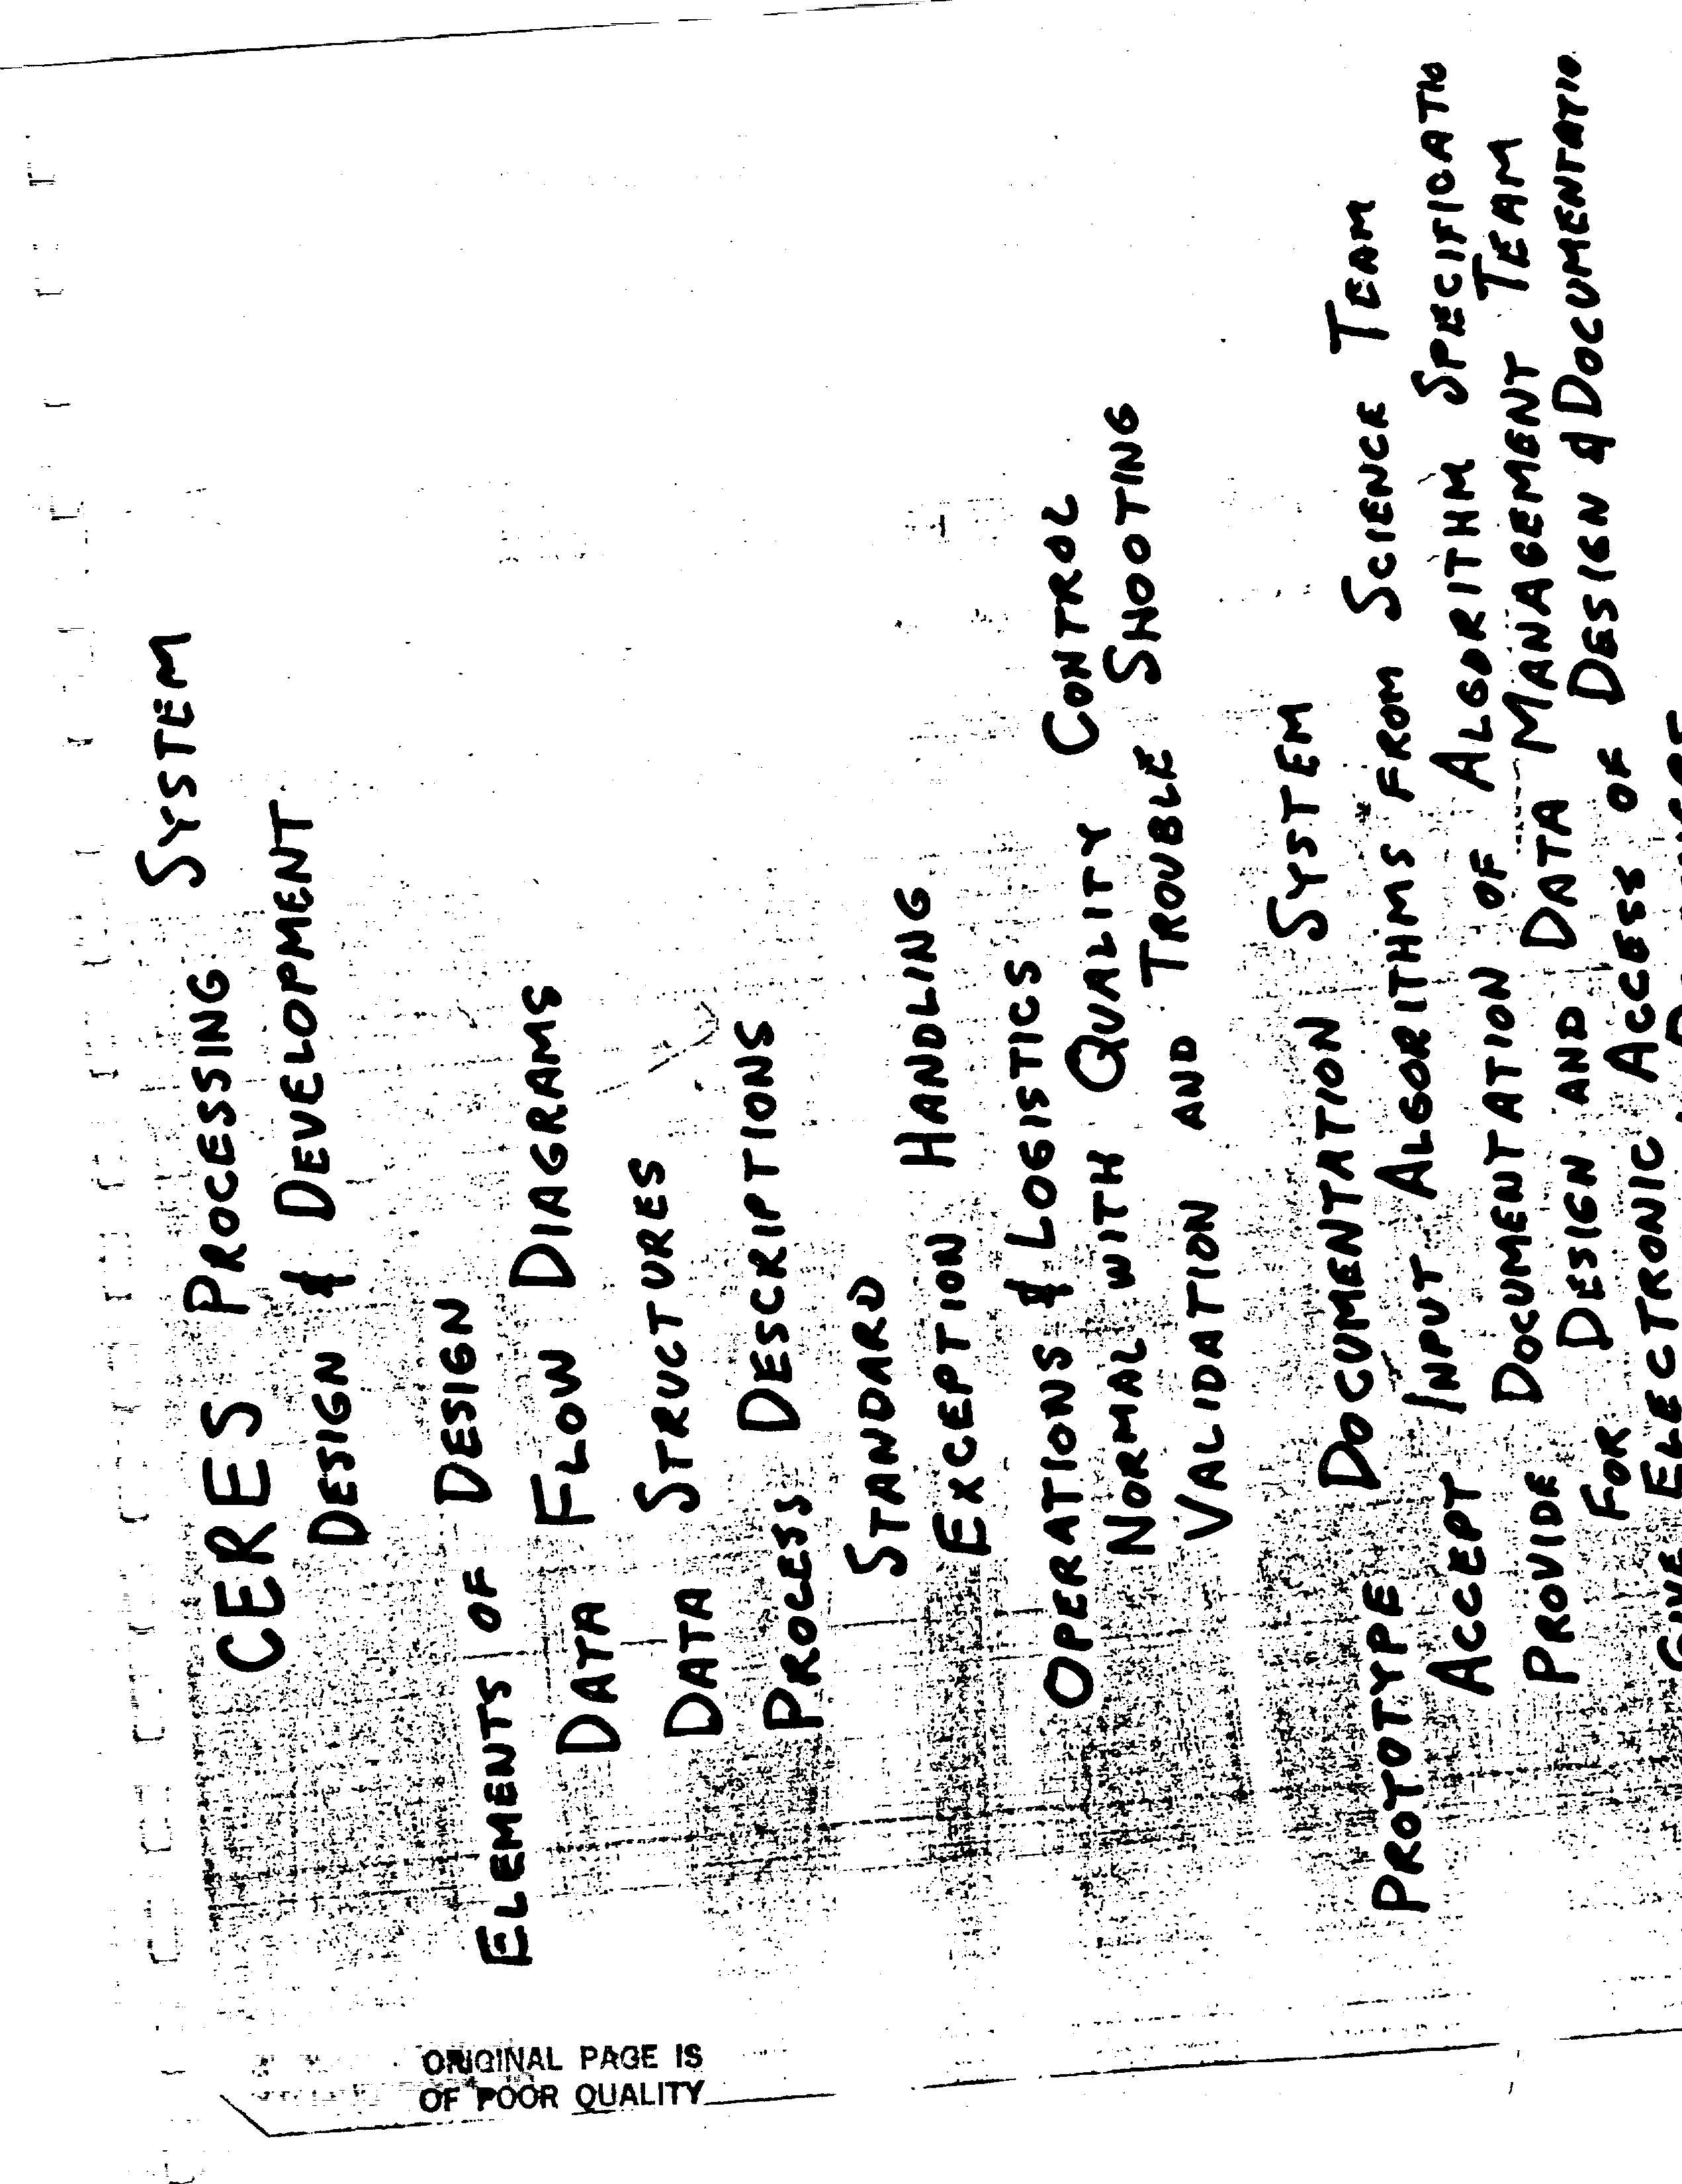 CERES PROCESSING SYSTEM
DESIGN & DEVELOPMENT
ELEMENTS OF DESIGN
DATA FLOW DIAGRAMS
DATA STRUCTURES
PROCESS DESCRIPTIONS
STANDARD
EXCEPTION HANDLING
OPERATIONS & LOGISTICS
NORMAL WITH QUALITY CONTROL
VALIDATION AND TROUBLE SHOOTING
PROTOTYPE DOCUMENTATION SYSTEM
ACCEPT INPUT ALGORITHMS FROM SCIENCE TEAM
PROVIDE DOCUMENTATION OF ALGORITHM SPECIFICATIO
FOR DESIGN AND DATA MANAGEMENT TEAM
ELECTRONIC ACCESS OF DESIGN & DOCUMENTATIO
ORIGINAL PAGE IS
OF POOR QUALITY